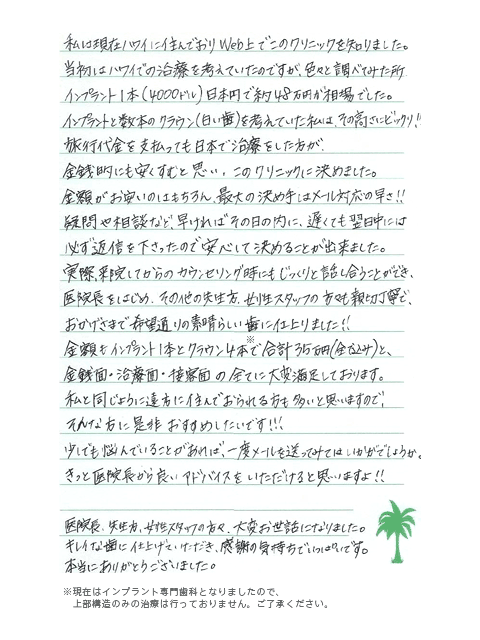 私は現在ハワイに住んでおりWeb上でこのクリニックを知りました。
当初はハワイでの治療を考えていたのですが、色々と調べてみた所
インプラント1本(4000ドル)日本円で約48万円が相場でした。
インプラントと数本のクラウン(白い歯)を考えていた私は、その高さにビックリ!!
旅行代金を支払っても日本で治療をした方が、
金銭的にも安くすむと思い、このクリニックに決めました。
金額がお安いのはもちろん、最大の決め手はメール対応の早さ!!
疑問や相談など、早ければその日の内に、遅くても翌日中には
必ず返信を下さったので安心して決めることが出来ました。
実際、来院してからのカウンセリング時にもじっくりと話し合うことができ、
医院長をはじめ、その他の先生方、女性スタッフの方も親切丁寧で、
おかげさまで希望通りの素晴らしい歯に仕上りました!!
金額もインプラント1本とクラウン4本※で合計35万円(全て込み)と、
金銭面・治療面・接客面の全てに大変満足しております。
私と同じように遠方に住んでおられる方も多いと思いますので、
そんな方に是非おすすめしたいです!!!
少しでも悩んでいることがあれば、一度メールを送ってみてはいかがでしょうか。
きっと医院長から良いアドバイスをいただけると思いますよ!!
医院長、先生方、女性スタッフの方々、大変お世話になりました。
キレイな歯に仕上げていただき、感謝の気持ちでいっぱいです。
本当にありがとうございました。
※現在はインプラント専門歯科となりましたので、
上部構造のみの治療は行っておりません。ご了承ください。